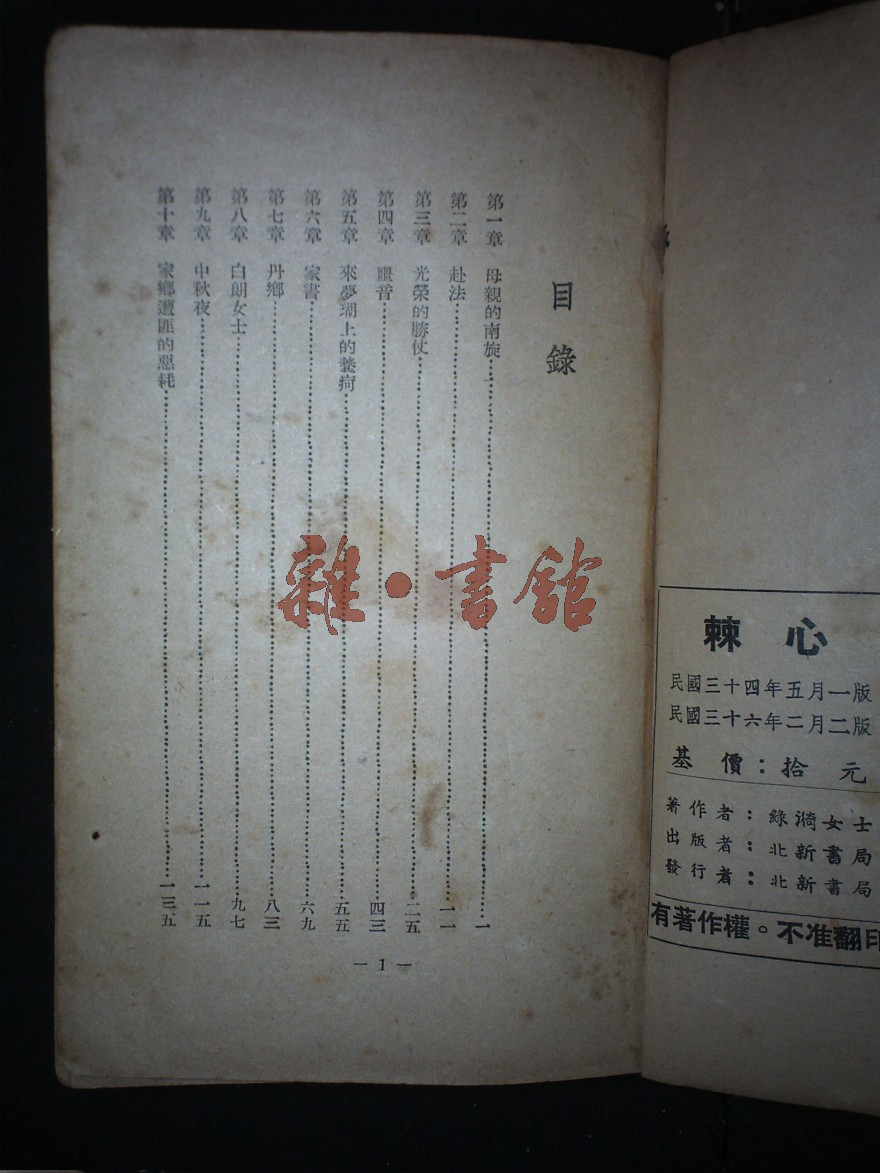 棘心
民國三十四年五月一版
民國三十六年二月二版
基價：拾元
著作者：綠漪女士
出版者：北新書局
發行者：北新書局
有著作權。不准翻印
目錄
第一章 母親的南旋 一
第二章 赴法 一一
第三章 光榮的勝仗 二五
第四章 噩音 四三
第五章 來夢瑚上的養疴 五五
第六章 家書 六九
第七章 丹鄉 八三
第八章 白朗女士 九七
第九章 中秋夜 一一五
第十章 家鄉遭匪的惡耗 一三五
— 1 —
雜·書館